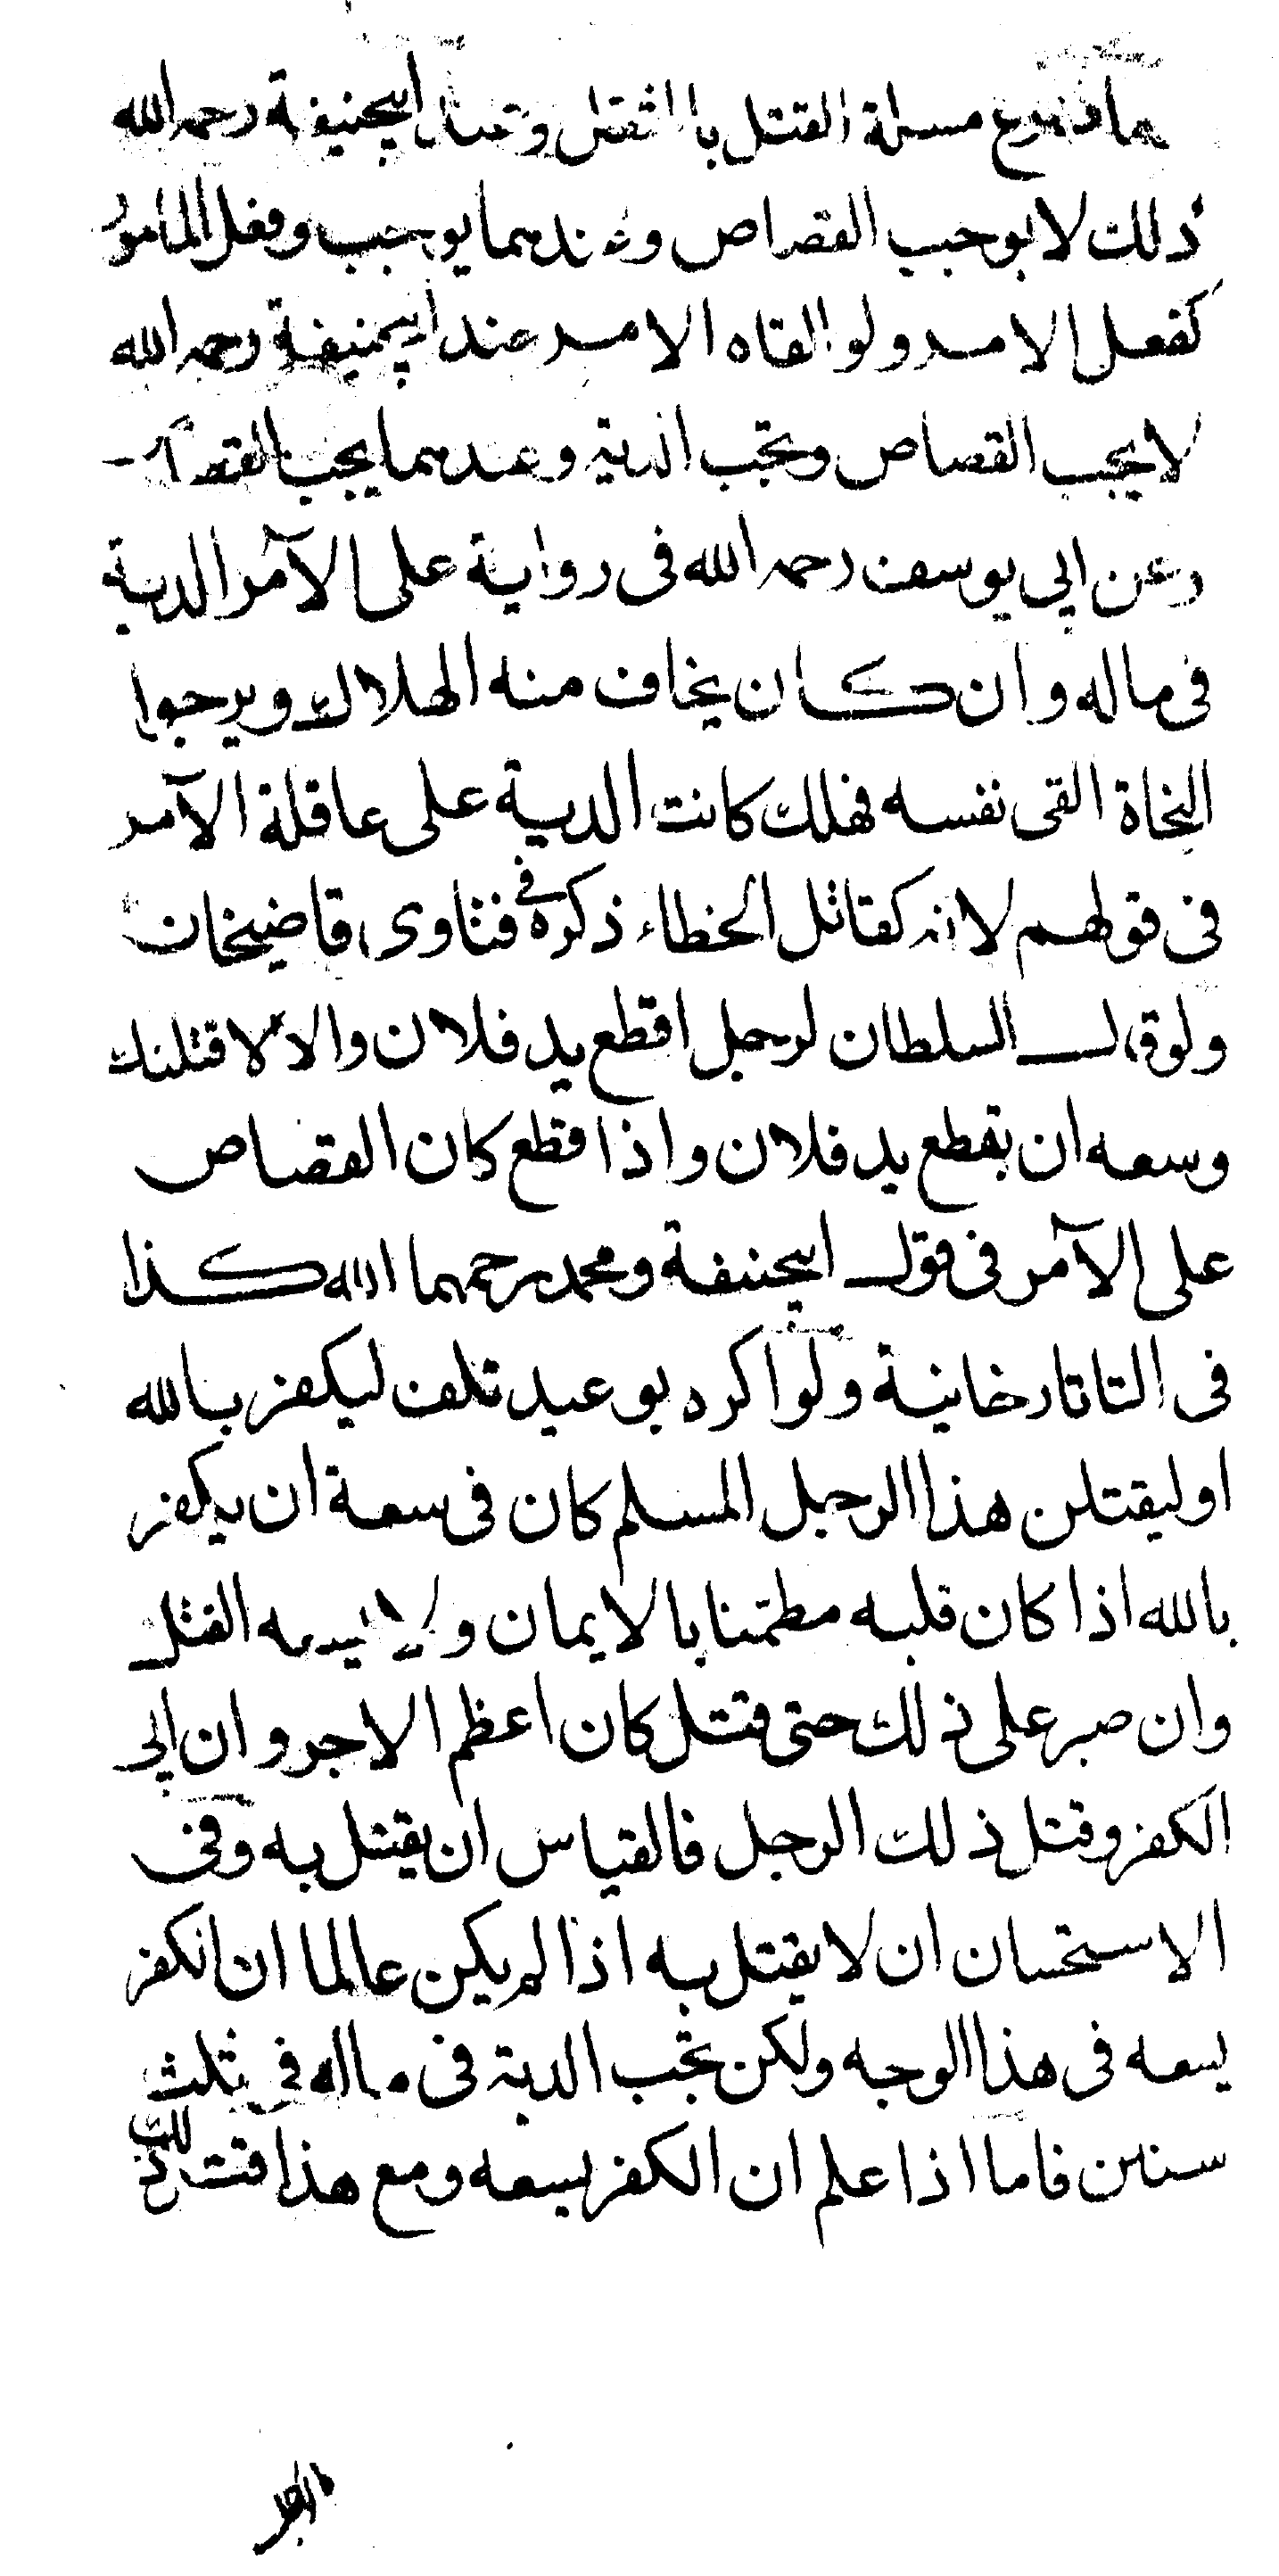 هما فروع مسئلة القتل بالمثقل وعند ابيحنيفة رحمه الله
ذلك لا يوجب القصاص وعندهما يوجب وفعل المامور
كفعل الامر ولو القاه الامر عند ابيحنيفة رحمه الله
لا يجب القصاص وتجب الدية وعندهما يجب القصاص
وعن ابي يوسف رحمه الله فى رواية على الآمر الدية
فى ماله وان كان يخاف منه الهلاك ويرجوا
النجاة القى نفسه فهلك كانت الدية على عاقلة الآمر
فى قولهم لانه كقاتل الخطاء ذكره فى فتاوى قاضيخان
ولو قال السلطان لرجل اقطع يد فلان والا لاقتلنك
وسعه ان يقطع يد فلان واذا قطع كان القصاص
على الآمر فى قول ابيحنيفة ومحمد رحمهما الله كذا
فى التاتارخانية ولو اكره بوعيد تلف ليكفر بالله
او ليقتلن هذا الرجل المسلم كان فى سعة ان يكفر
بالله اذا كان قلبه مطمئنا بالايمان ولا يسعه القتل
وان صبر على ذلك حتى قتل كان اعظم الاجر وان ابى
الكفر وقتل ذلك الرجل فالقياس ان يقتل به وفى
الاستحسان ان لا يقتل به اذا لم يكن عالما ان الكفر
يسعه فى هذا الوجه ولكن تجب الدية فى ماله فى ثلث
سنين فاما اذا علم ان الكفر يسعه ومع هذا قتل ذلك